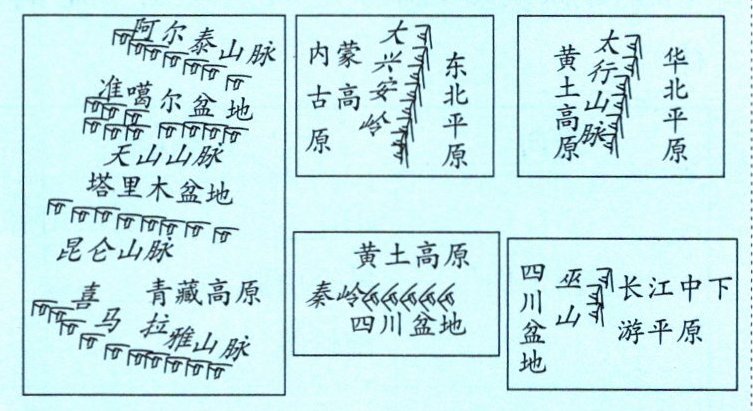 阿尔泰山脉
准噶尔盆地
天山山脉
塔里木盆地
昆仑山脉
青藏高原
喜马拉雅山脉
内蒙
古高
原
大兴安岭
东北平原
黄土高原
太行山脉
华北平原
黄土高原
秦岭
四川盆地
四川盆地
巫山
长江中下
游平原